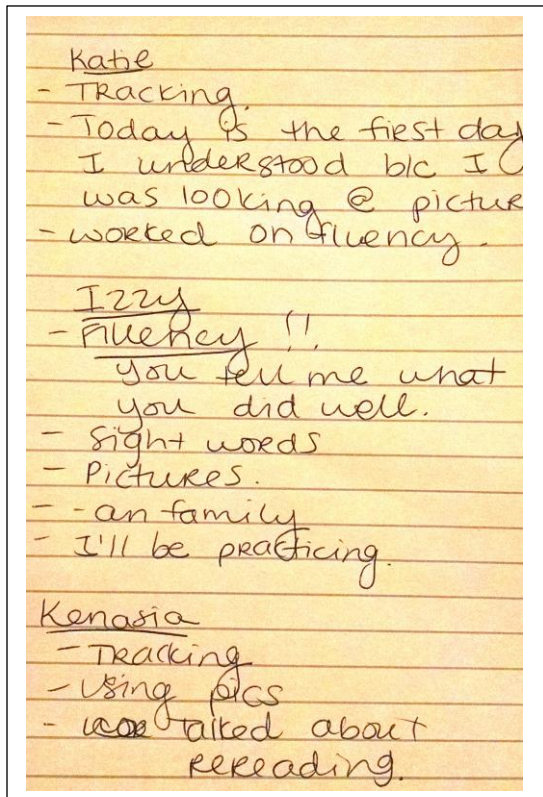 Katie
- Tracking.
- Today is the first day
I understood b/c I
was looking @ pictur
- worked on fluency.
Izzy
- Fluency !!
you tell me what
you did well.
- Sight words
- Pictures.
- -an family
- I'll be practicing.
Kenasia
- Tracking
- Using pics
- talked about
rereading.